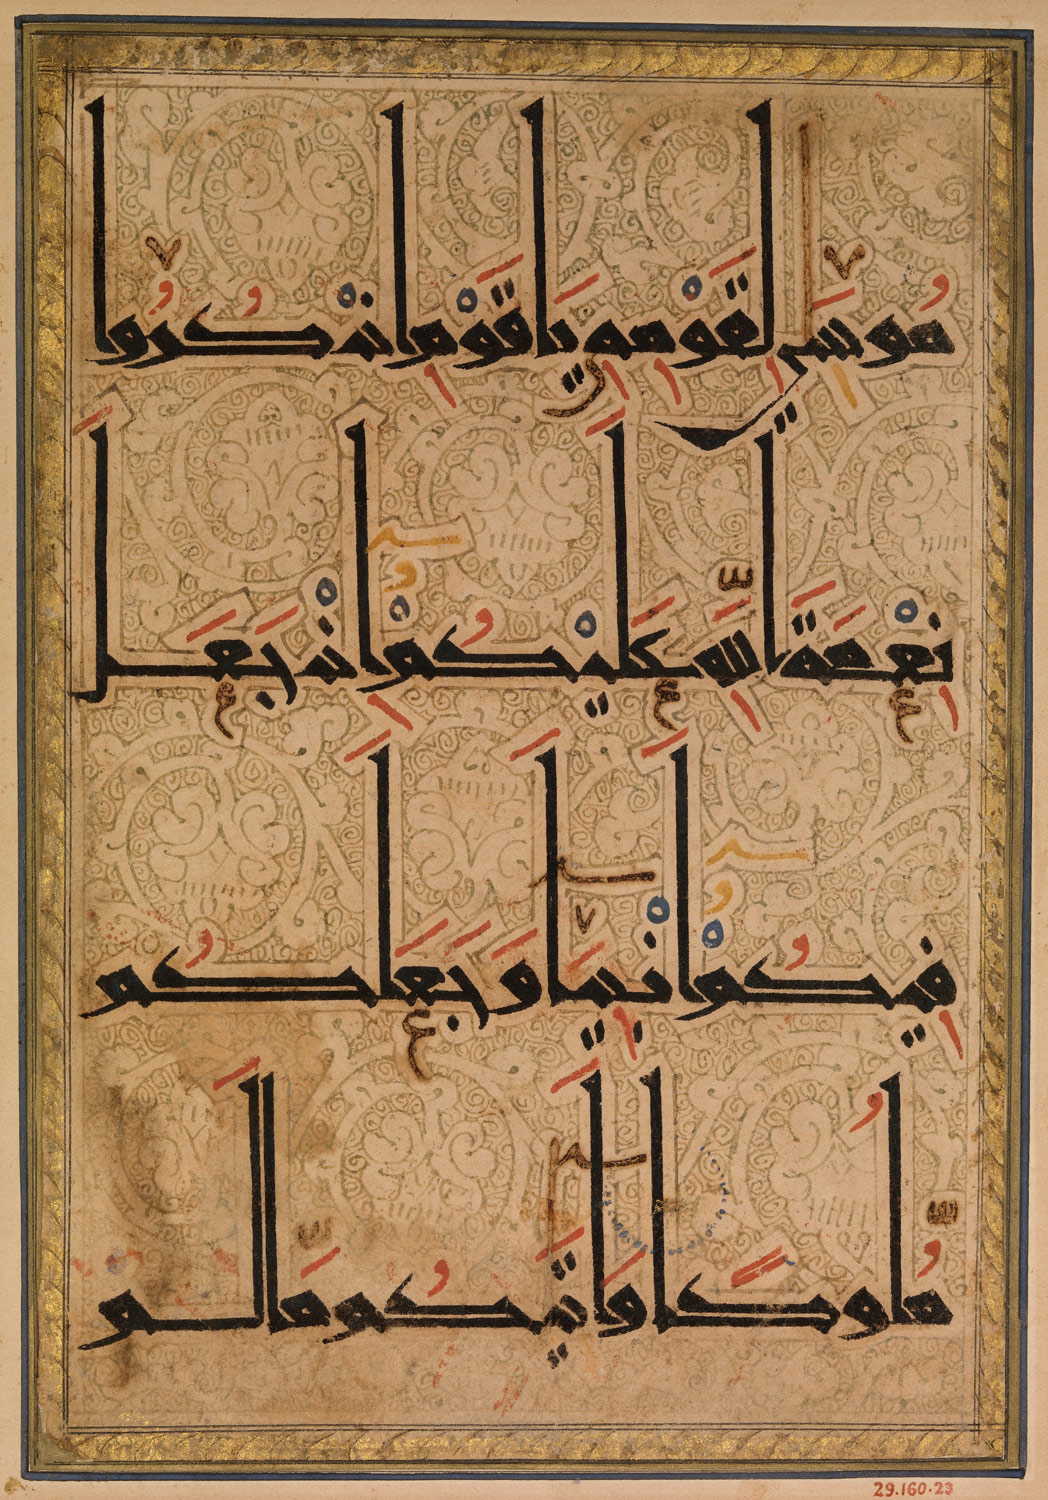 مُوسَىٰ لِقَوْمِهِ يَاقَوْمِ اذْكُرُوا
نِعْمَةَ اللَّهِ عَلَيْكُمْ إِذْ جَعَلَ
فِيكُمْ أَنْبِيَاءَ وَجَعَلَكُمْ
مُلُوكًا وَآتَيٰكُمْ مَا لَمْ
29.160.23